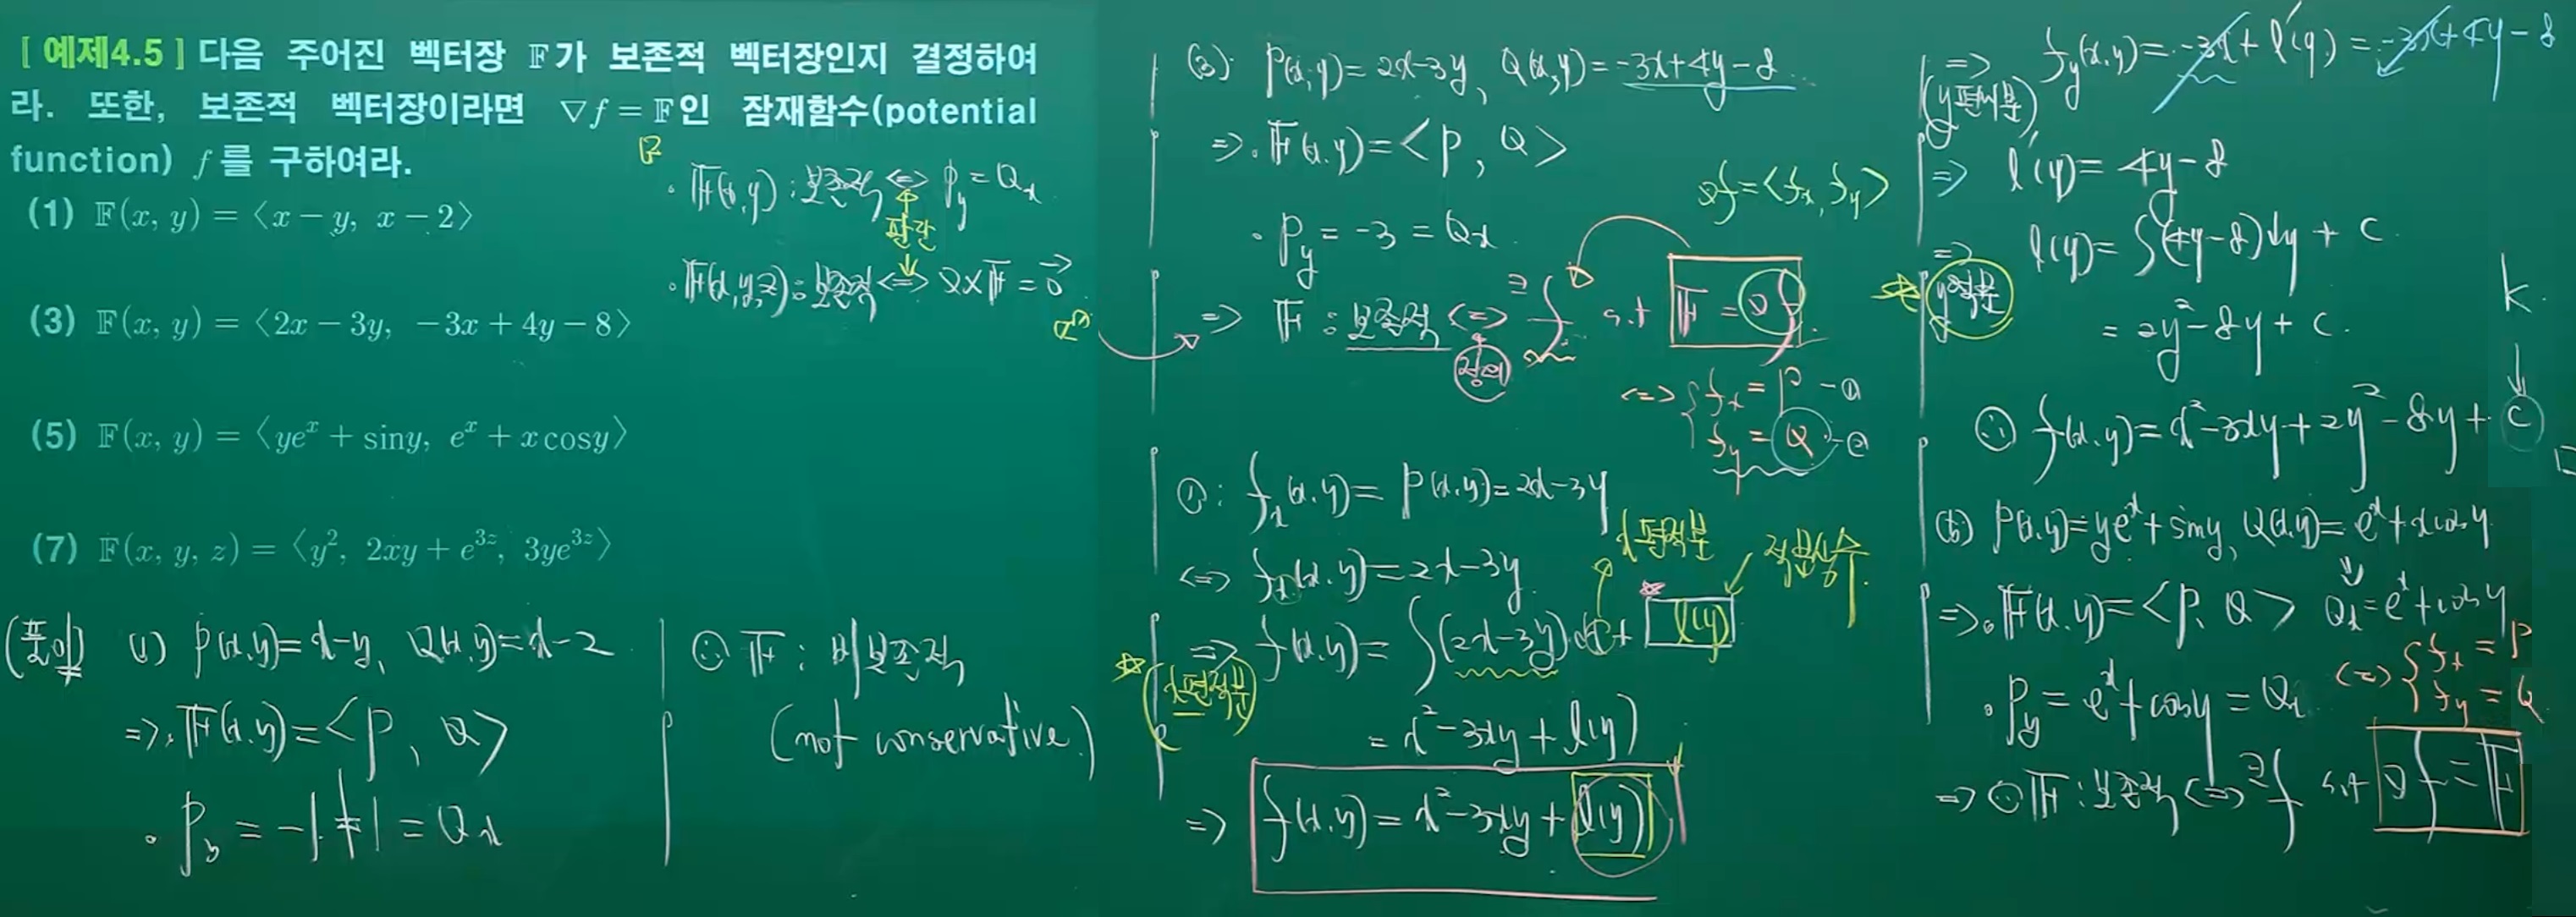 [ 예제4.5 ] 다음 주어진 벡터장 𝔽가 보존적 벡터장인지 결정하여
라. 또한, 보존적 벡터장이라면 ∇f = 𝔽인 잠재함수(potential
function) f를 구하여라.
(1) 𝔽(x, y) = ⟨x − y, x − 2⟩
(3) 𝔽(x, y) = ⟨2x − 3y, −3x + 4y − 8⟩
(5) 𝔽(x, y) = ⟨yeˣ + siny, eˣ + x cosy⟩
(7) 𝔽(x, y, z) = ⟨y², 2xy + e³ᶻ, 3ye³ᶻ⟩
· 𝔽(x,y) : 보존적 <=> P_y = Q_x
판단
· 𝔽(x,y,z) : 보존적 <=> ∇×𝔽 = 0⃗
(풀이) (1) P(x,y) = x−y, Q(x,y) = x−2
=> · 𝔽(x,y) = <P, Q>
· P_y = −1 ≠ 1 = Q_x
∴ 𝔽 : 비보존적
(not conservative.)
(3) P(x,y) = 2x−3y, Q(x,y) = −3x+4y−8
=> · 𝔽(x,y) = <P, Q>
∇f = <f_x, f_y>
· P_y = −3 = Q_x
=> 𝔽 : 보존적 <=> ∃ f s.t 𝔽 = ∇f
정의
<=> { f_x = P −①
f_y = Q −②
① : f_x(x,y) = P(x,y) = 2x−3y
<=> f_x(x,y) = 2x−3y
x편적분 적분상수
=> f(x,y) = ∫(2x−3y)dx + l(y)
x편적분
= x²−3xy + l(y)
=> f(x,y) = x²−3xy + l(y)
=> f_y(x,y) = −3x + l′(y) = −3x+4y−8
(y편미분)
=> l′(y) = 4y−8
=> l(y) = ∫(4y−8)dy + C
y적분
= 2y²−8y + C
k
∴ f(x,y) = x²−3xy+2y²−8y + C
(5) P(x,y) = yeˣ + siny, Q(x,y) = eˣ + xcosy
=> · 𝔽(x,y) = <P, Q> Q_x = eˣ + cosy
· P_y = eˣ + cosy = Q_x
<=> { f_x = P
f_y = Q
=> ∴ 𝔽 : 보존적 <=> ∃ f s.t ∇f = 𝔽